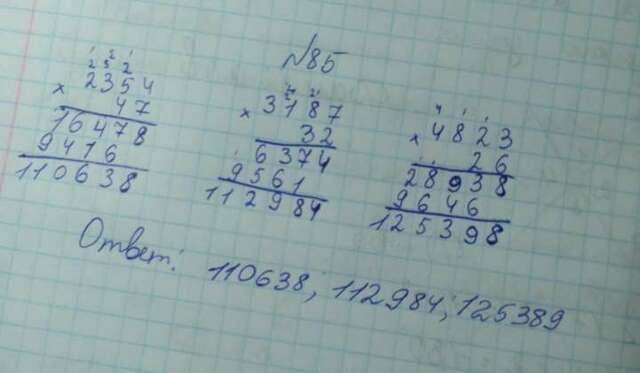 №85
2354
× 47
16478
9416
110638
3187
× 32
6374
9561
112984
4823
× 26
28938
9646
125398
Ответ: 110638; 112984; 125389